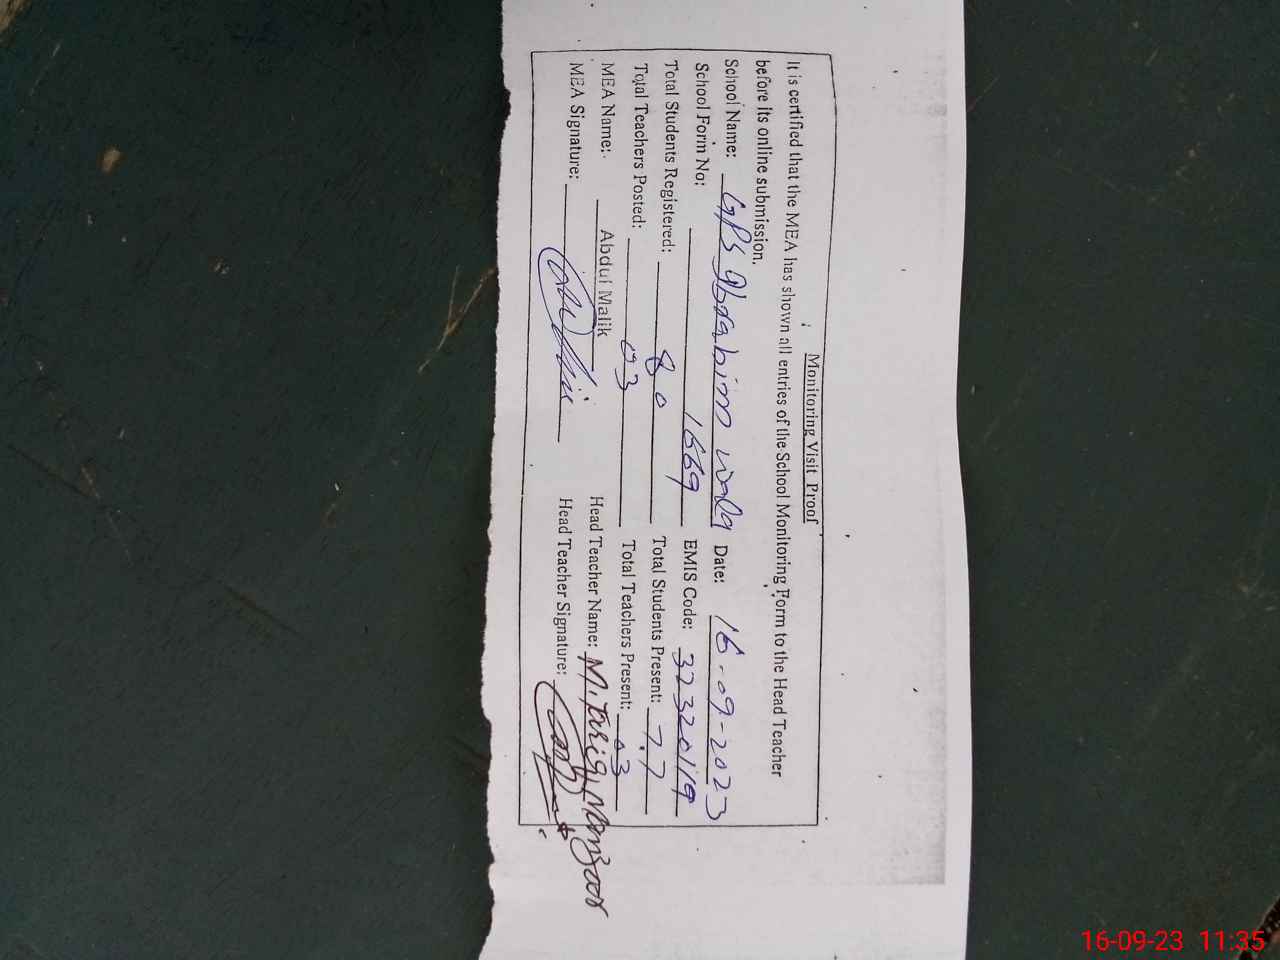 Monitoring Visit Proof
It is certified that the MEA has shown all entries of the School Monitoring Form to the Head Teacher
before its online submission.
School Name: GPS Ibrahim wala Date: 16-09-2023
School Form No: 1669 EMIS Code: 32320119
Total Students Registered: 80 Total Students Present: 77
Total Teachers Posted: 03 Total Teachers Present: 03
MEA Name: Abdul Malik Head Teacher Name: M. Tariq Manzoor
MEA Signature: Head Teacher Signature:
16-09-23 11:35